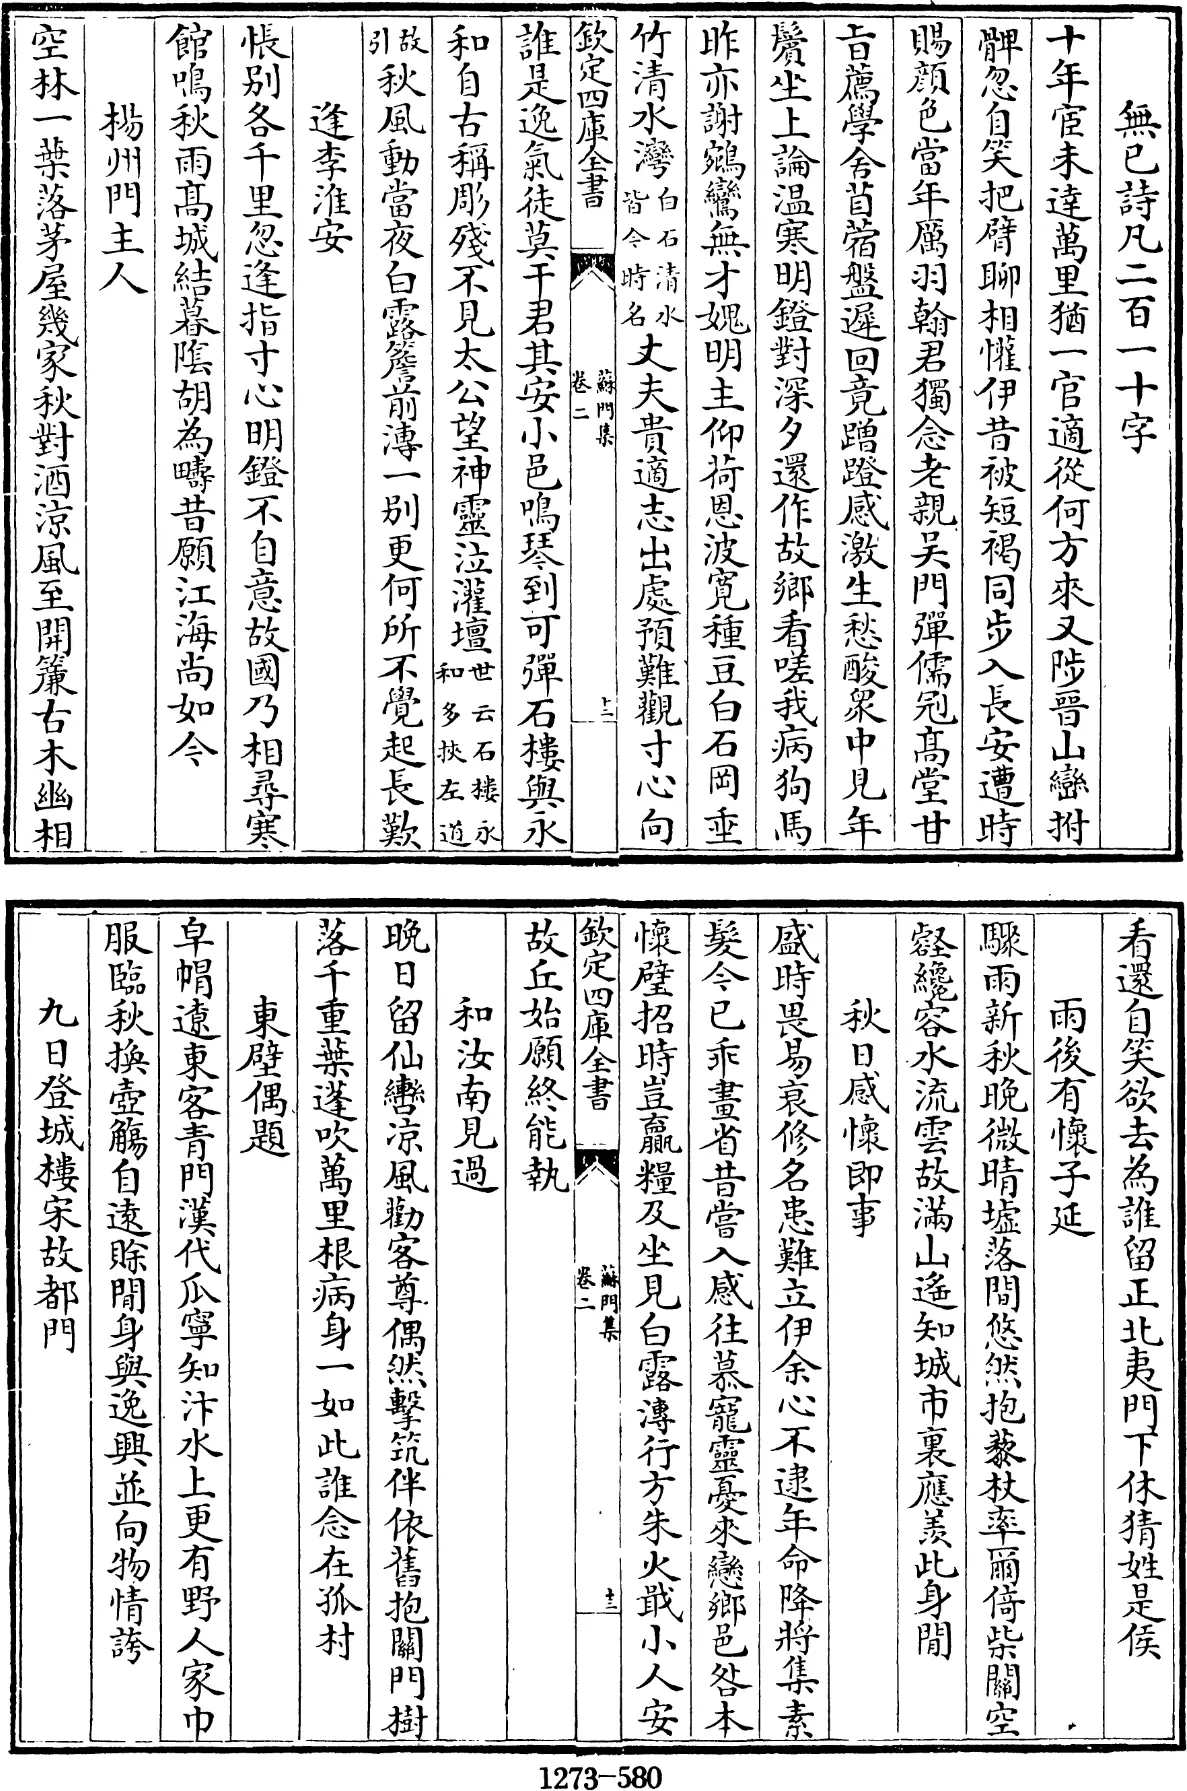 無已詩凡二百一十字
十年宦未達萬里猶一官適從何方來又陟晉山巒拊
髀忽自笑把臂聊相懽伊昔被短褐同步入長安遭時
賜顔色當年厲羽翰君獨念老親吴門彈儒冠髙堂甘
㫖薦學舍苜蓿盤遲回竟蹭蹬感激生愁酸衆中見年
鬢坐上論温寒明鐙對深夕還作故鄉看嗟我病狗馬
昨亦謝鵷鸞無才媿明主仰荷恩波寛種豆白石岡垂
竹清水灣白石清水皆今時名丈夫貴適志出處預難觀寸心向
欽定四庫全書
蘇門集
卷二
十二
誰是逸氣徒莫干君其安小邑鳴琴到可彈石樓與永
和自古稱彫殘不見太公望神靈泣灌壇世云石樓永和多挾左道
故引秋風動當夜白露簷前漙一别更何所不覺起長歎
逢李淮安
悵别各千里忽逢指寸心明鐙不自意故國乃相尋寒
館鳴秋雨髙城結暮陰胡為疇昔願江海尚如今
楊州門主人
空林一葉落茅屋幾家秋對酒涼風至開簾古木幽相
看還自笑欲去為誰留正北夷門下休猜姓是侯
雨後有懷子延
驟雨新秋晚微晴墟落間悠然抱藜杖率爾倚柴關空
壑纔容水流雲故滿山遙知城市裏應羨此身閒
秋日感懷即事
盛時畏易衰修名患難立伊余心不逮年命降將集素
髮今已乖畫省昔嘗入感往慕寵靈憂來戀鄉邑咎本
懷璧招時豈贏糧及坐見白露漙行方朱火戢小人安
欽定四庫全書
蘇門集
卷二
十三
故丘始願終能執
和汝南見過
晚日留仙轡涼風勸客尊偶然擊筑伴依舊抱關門樹
落千重葉蓬吹萬里根病身一如此誰念在孤村
東壁偶題
皁帽遼東客青門漢代瓜寧知汴水上更有野人家巾
服臨秋換壺觴自逺賖閒身與逸興並向物情誇
九日登城樓宋故都門
1273-580